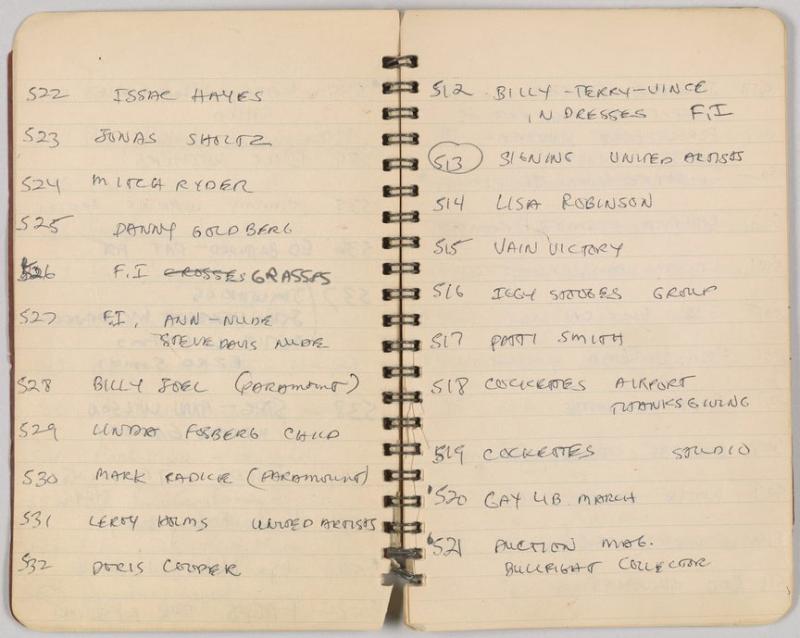 522 ISSAC HAYES
523 JONAS SHOLTZ
524 MITCH RYDER
525 DANNY GOLDBERG
526 F.I GROSSES GRASSES
527 F.I, ANN-NUDE
STEVE DAVIS NUDE
528 BILLY JOEL (PARAMOUNT)
529 LINDA FOSBERG CHILD
530 MARK RADICE (PARAMOUNT)
531 LEROY HOLMS UNITED ARTISTS
532 DORIS COOPER
512 BILLY-TERRY-VINCE
IN DRESSES F,I
513 SIGNING UNITED ARTISTS
514 LISA ROBINSON
515 VAIN VICTORY
516 IGGY STOOGES GROUP
517 PATTI SMITH
518 COCKETTES AIRPORT
THANKSGIVING
519 COCKETTES STUDIO
520 GAY LIB MARCH
521 AUCTION MAG.
BULLFIGHT COLLECTOR